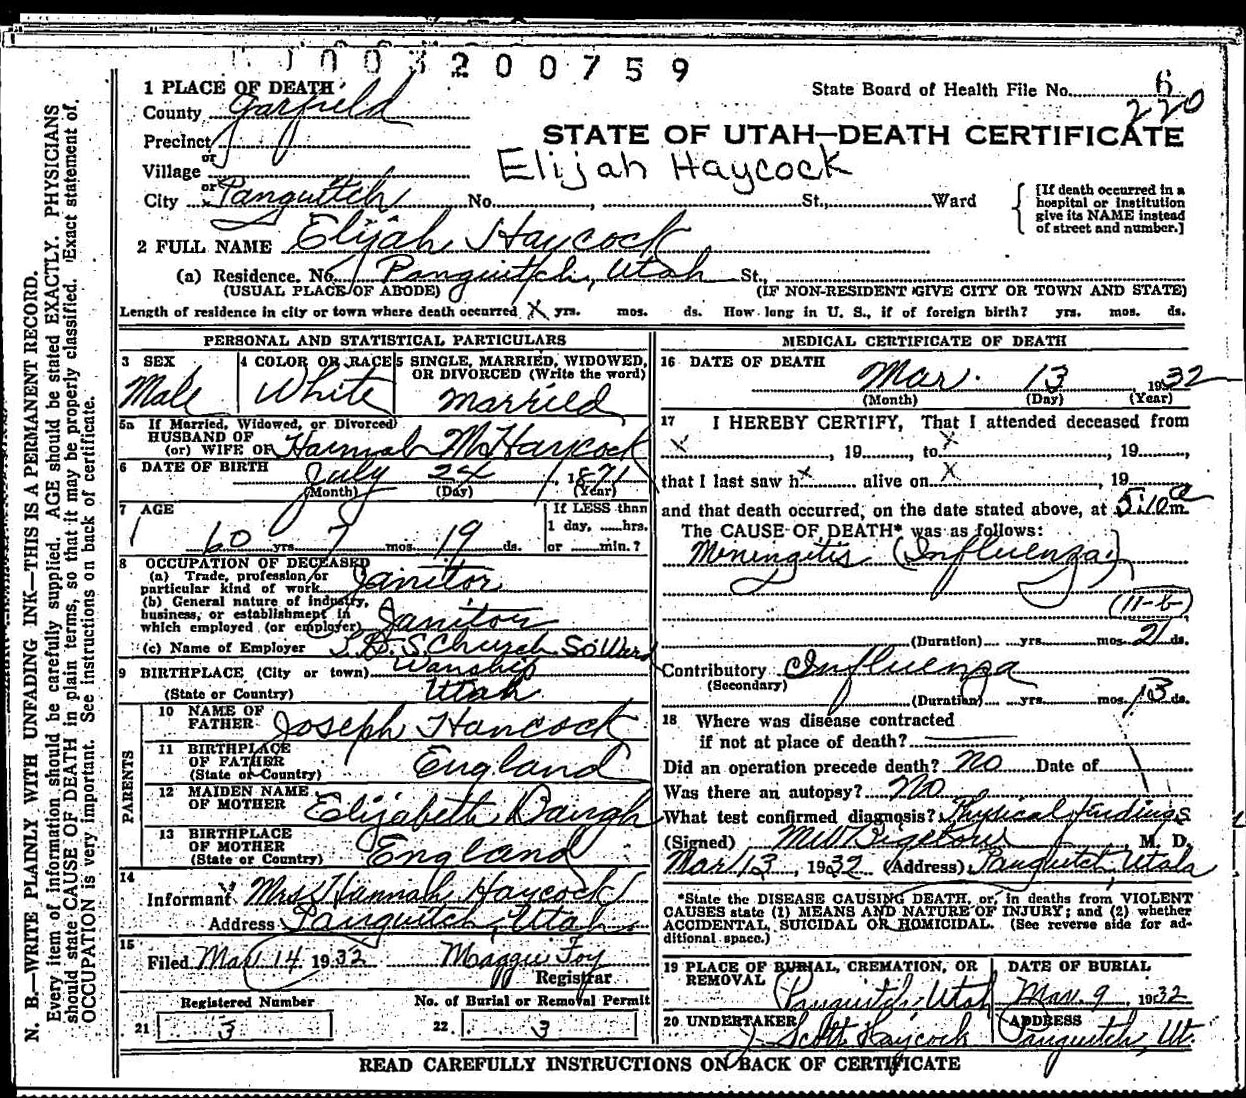 003200759
1 PLACE OF DEATH
State Board of Health File No. 6
220
County Garfield
Precinct
or
STATE OF UTAH—DEATH CERTIFICATE
Village
Elijah Haycock
or
City Panguitch No. , St., Ward
[If death occurred in a
hospital or institution
give its NAME instead
of street and number.]
2 FULL NAME Elijah Haycock
(a) Residence. No. Panguitch, Utah St.,
(USUAL PLACE OF ABODE) (IF NON-RESIDENT GIVE CITY OR TOWN AND STATE)
Length of residence in city or town where death occurred X yrs. mos. ds. How long in U. S., if of foreign birth? yrs. mos. ds.
PERSONAL AND STATISTICAL PARTICULARS
3 SEX
Male
4 COLOR OR RACE
White
5 SINGLE, MARRIED, WIDOWED,
OR DIVORCED (Write the word)
Married
5a If Married, Widowed, or Divorced
HUSBAND OF
(or) WIFE OF Hannah M. Haycock
6 DATE OF BIRTH July 24, 1871
(Month) (Day) (Year)
7 AGE
60 yrs 7 mos. 19 ds.
If LESS than
1 day, ......hrs.
or ......min.?
8 OCCUPATION OF DECEASED
(a) Trade, profession or
particular kind of work Janitor
(b) General nature of industry,
business, or establishment in
which employed (or employer) Janitor
(c) Name of Employer L.D.S. Church So Ward
9 BIRTHPLACE (City or town) Wanship
(State or Country) Utah
PARENTS
10 NAME OF
FATHER Joseph Hancock
11 BIRTHPLACE
OF FATHER England
(State or Country)
12 MAIDEN NAME
OF MOTHER Elizabeth
13 BIRTHPLACE
OF MOTHER England
(State or Country)
14
Informant Mrs Hannah Haycock
Address Panguitch, Utah
15
Filed Mar 14 1932 Maggie Foy
Registrar
Registered Number
21 3
No. of Burial or Removal Permit
22. 3
MEDICAL CERTIFICATE OF DEATH
16 DATE OF DEATH
Mar. 13, 1932
(Month) (Day) (Year)
17 I HEREBY CERTIFY, That I attended deceased from
X , 19......, to X , 19......,
that I last saw h X alive on X , 19......
and that death occurred, on the date stated above, at 5:10 a m.
The CAUSE OF DEATH* was as follows:
Meningitis (Influenza)
(11-b)
(Duration) yrs. mos. 2 ds.
Contributory Influenza
(Secondary)
(Duration) yrs. mos. 13 ds.
18 Where was disease contracted
if not at place of death?
Did an operation precede death? No Date of
Was there an autopsy? No
What test confirmed diagnosis? Physical findings
(Signed) M W Bigelow M. D.
Mar 13, 1932 (Address) Panguitch, Utah
*State the DISEASE CAUSING DEATH, or, in deaths from VIOLENT
CAUSES state (1) MEANS AND NATURE OF INJURY; and (2) whether
ACCIDENTAL, SUICIDAL OR HOMICIDAL. (See reverse side for ad-
ditional space.)
19 PLACE OF BURIAL, CREMATION, OR
REMOVAL
Panguitch, Utah
DATE OF BURIAL
Mar. 9, 1932
20 UNDERTAKER
J. Scott Haycock
ADDRESS
Panguitch, Ut.
READ CAREFULLY INSTRUCTIONS ON BACK OF CERTIFICATE
N. B.—WRITE PLAINLY WITH UNFADING INK—THIS IS A PERMANENT RECORD.
Every item of information should be carefully supplied. AGE should be stated EXACTLY. PHYSICIANS
should state CAUSE OF DEATH in plain terms, so that it may be properly classified. Exact statement of
OCCUPATION is very important. See instructions on back of certificate.